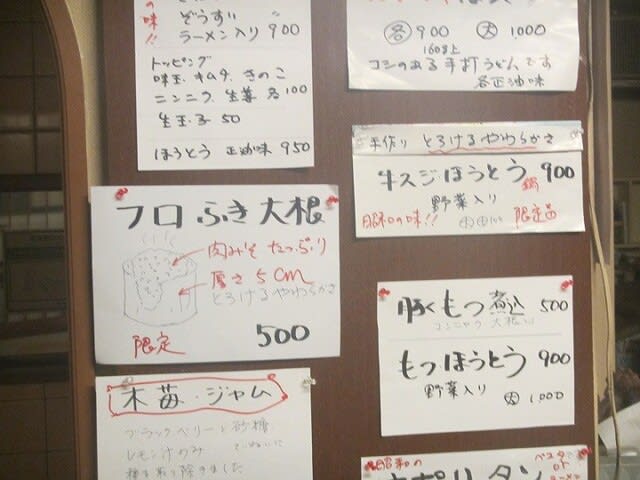 の味!!
ぞうすい
ラーメン入り 900
トッピング
味玉.キムチ.きのこ
ニンニク.生姜 各100
生玉子 50
ほうとう 正油味 950
各 900 大 1000
160g上
コシのある手打うどんです
各正油味
手作り とろけるやわらかさ
牛スジほうとう鍋 900
野菜入り
昭和の味!!
限定品
フロふき大根
肉みそたっぷり
厚さ5cm
とろけるやわらかさ
限定
500
豚もつ煮込 500
コンニャク 大根
もつほうとう 900
野菜入り 大 1000
木苺.ジャム
ブラックベリーと砂糖
レモン汁のみ
ていねいに
種を取り除きました
昭和の
ナポリタン